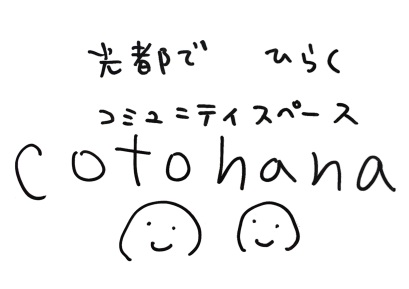 光都で ひらく
コミュニティスペース
cotohana